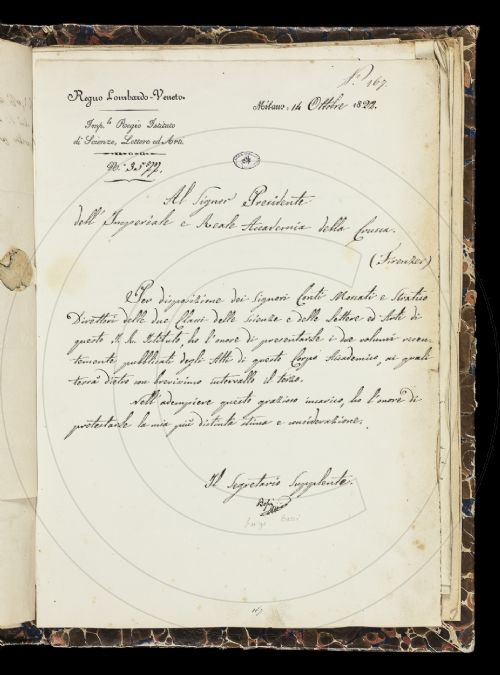 N.° 167.
Regno Lombardo-Veneto.
Milano, 14 Ottobre 1822.
Imp.le Regio Istituto
di Scienze, Lettere ed Arti.
N.°
Al Signor Presidente
dell'Imperiale e Reale Accademia della Crusca.
(Firenze)
Per disposizione dei Signori Conti Moscati e Stratico
Direttori delle due Classi delle Scienze e delle Lettere ed Arti di
questo I. R. Istituto, ho l'onore di presentarle i due volumi recen-
temente pubblicati degli Atti di questo Corpo Accademico, ai quali
terrà dietro con brevissimo intervallo il terzo.
Nell'adempiere questo grazioso incarico, ho l'onore di
protestarle la mia più distinta stima e considerazione.
Il Segretario Supplente.
167